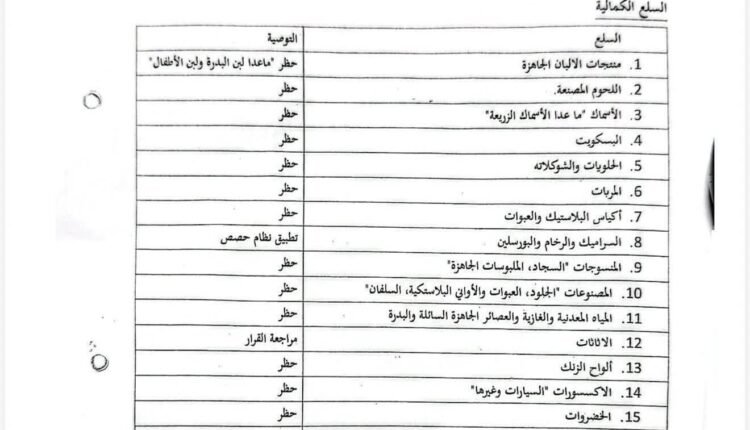 السلع الكمالية
السلع التوصية
1. منتجات الالبان الجاهزة حظر "ماعدا لبن البدرة ولبن الأطفال"
2. اللحوم المصنعة. حظر
3. الأسماك "ما عدا الأسماك الزريعة" حظر
4. البسكويت حظر
5. الحلويات والشوكلاته حظر
6. المربات حظر
7. أكياس البلاستيك والعبوات حظر
8. السراميك والرخام والبورسلين تطبيق نظام حصص
9. المنسوجات "السجاد، الملبوسات الجاهزة" حظر
10. المصنوعات "الجلود، العبوات والأواني البلاستكية، السلفان" حظر
11. المياه المعدنية والغازية والعصائر الجاهزة السائلة والبدرة حظر
12. الاثاثات مراجعة القرار
13. ألواح الزنك حظر
14. الاكسسورات "السيارات وغيرها" حظر
15. الخضروات حظر